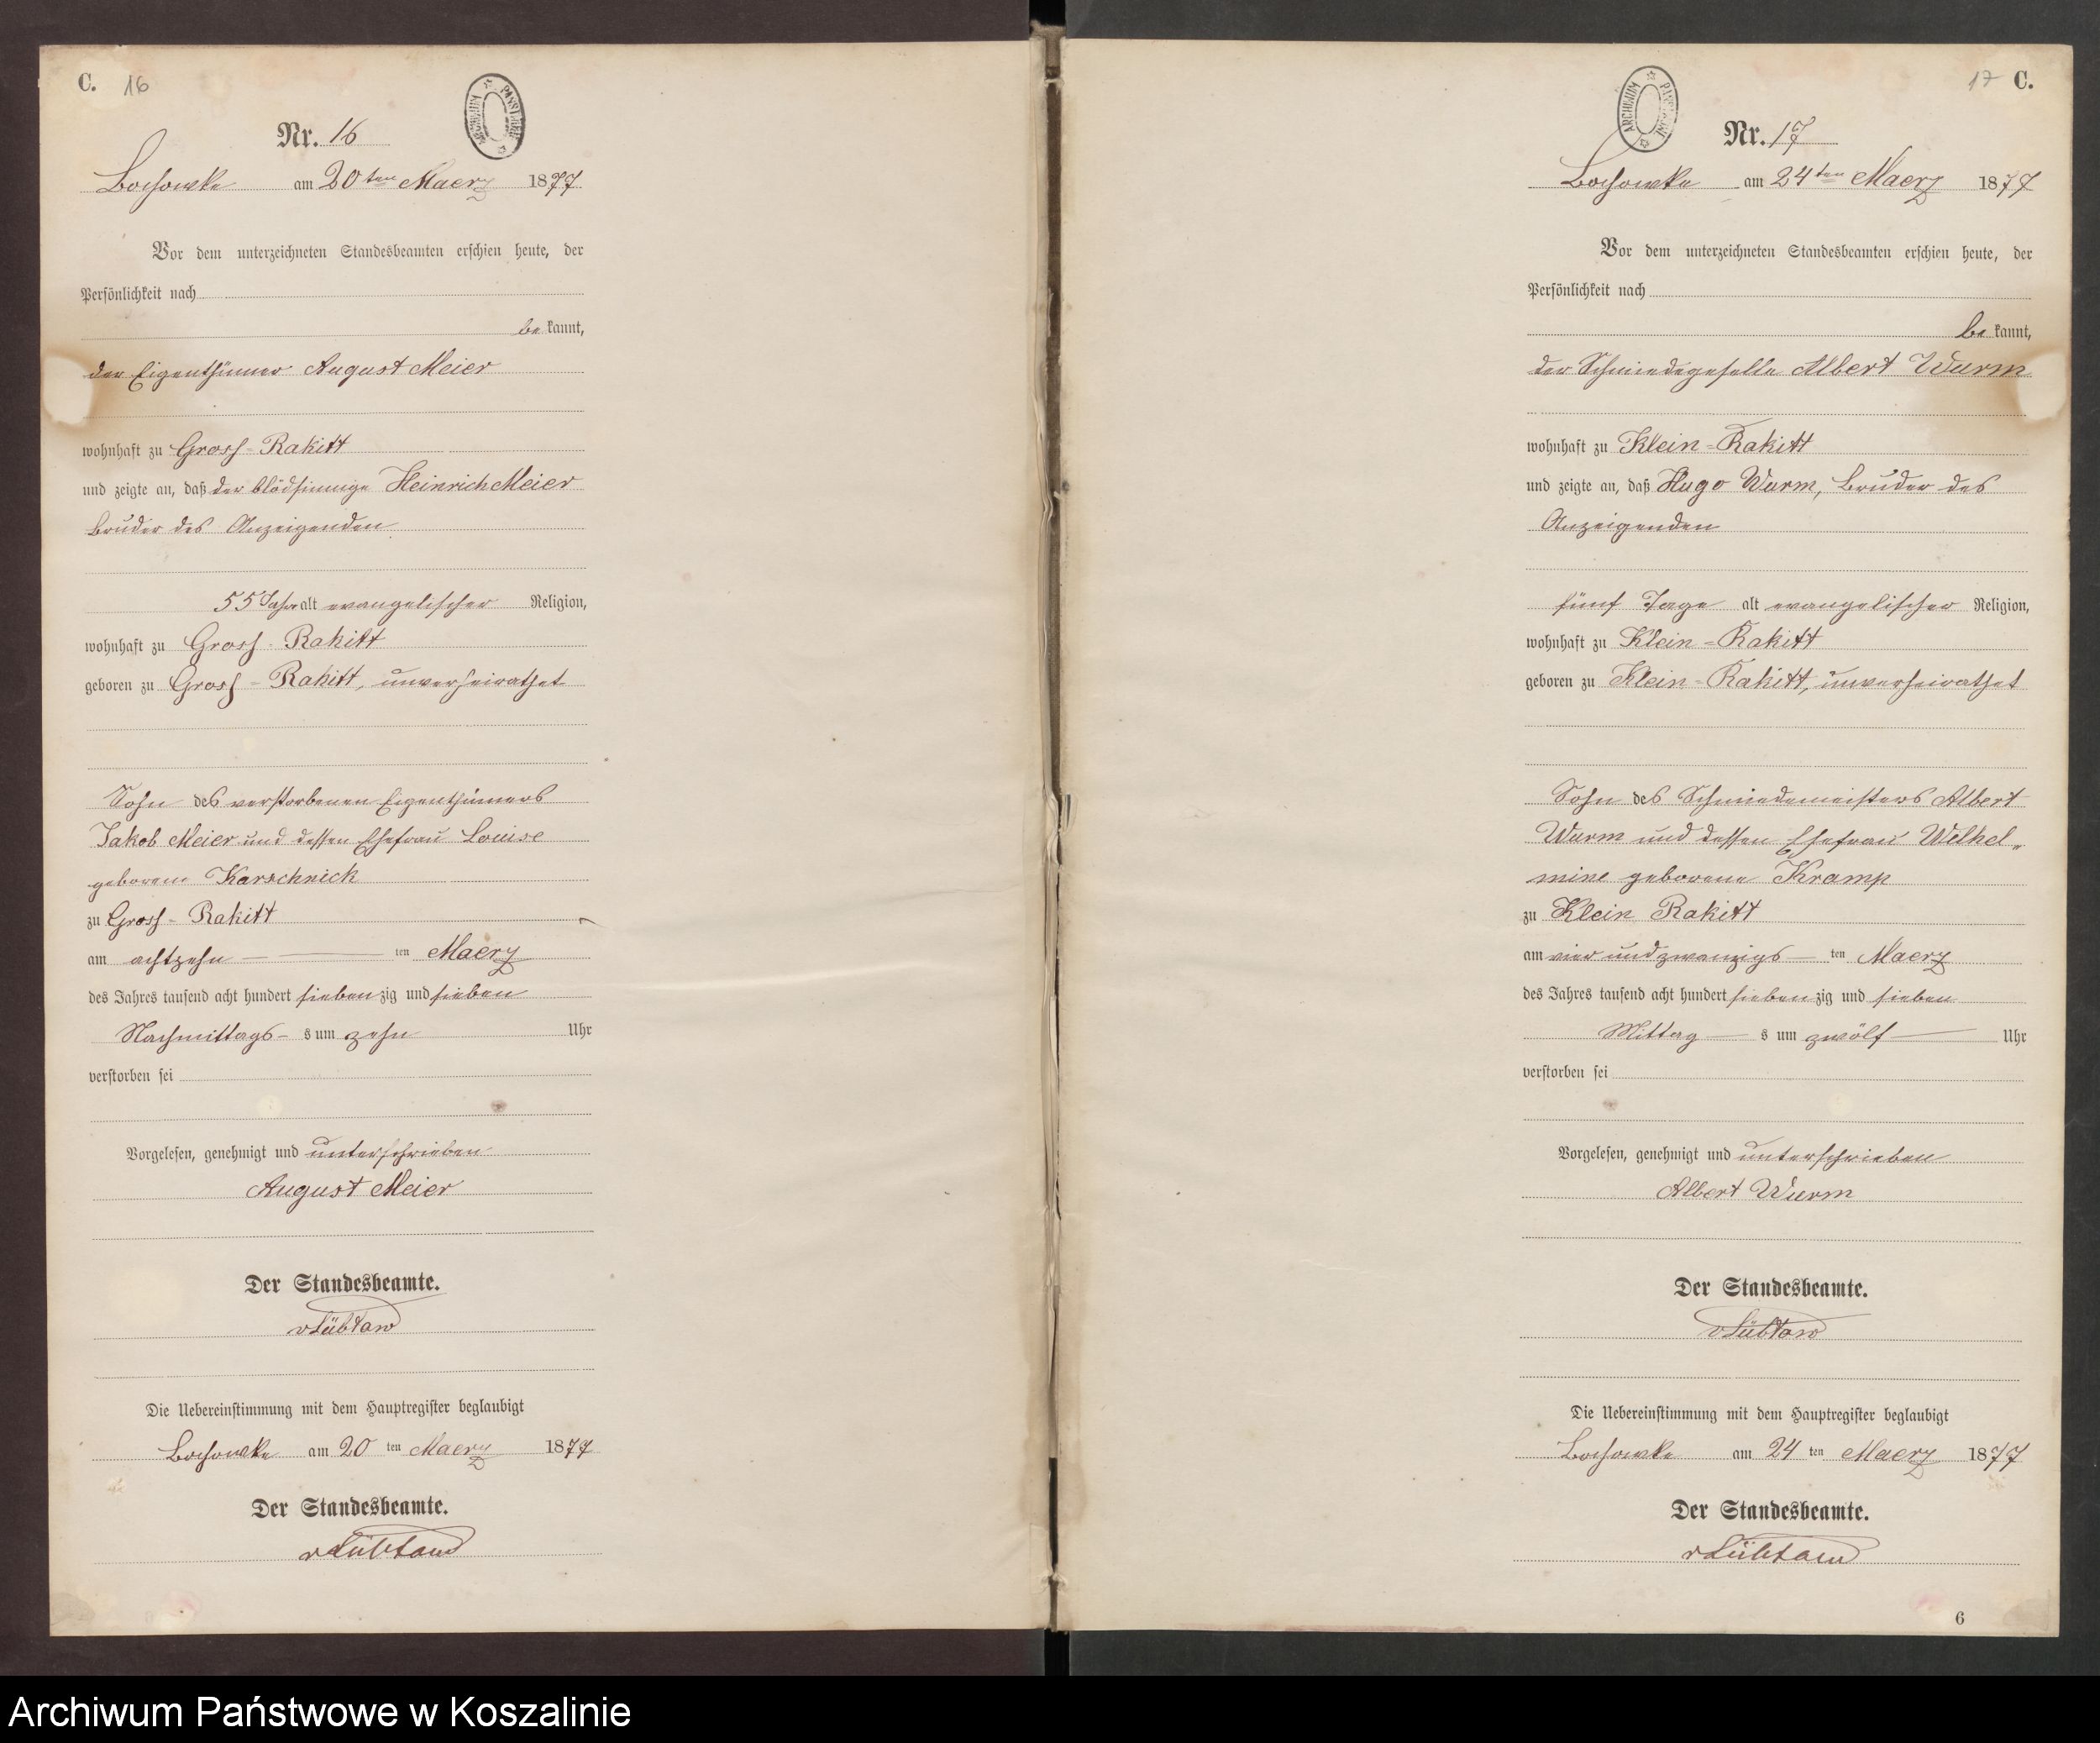 C. 16
ARCHIWUM PAŃSTWOWE
Nr. 16
Bochowke am 20ten Maerz 1877
Vor dem unterzeichneten Standesbeamten erschien heute, der
Persönlichkeit nach
be kannt,
der Eigenthümer August Meier
wohnhaft zu Gross-Rakitt
und zeigte an, daß der blödsinnige Heinrich Meier
Bruder des Anzeigenden
55 Jahr alt evangelischer Religion,
wohnhaft zu Gross-Rakitt
geboren zu Gross-Rakitt, unverheirathet
Sohn des verstorbenen Eigenthümers
Jakob Meier und dessen Ehefrau Louise
geborene Karschnick
zu Gross-Rakitt
am achtzehn ten Maerz
des Jahres tausend acht hundert siebenzig und sieben
Nachmittags s um zehn Uhr
verstorben sei
Vorgelesen, genehmigt und unterschrieben
August Meier
Der Standesbeamte.
vLübtow
Die Uebereinstimmung mit dem Hauptregister beglaubigt
Bochowke am 20 ten Maerz 1877
Der Standesbeamte.
vLübtow
17 C.
ARCHIWUM
Nr. 17
Bochowke am 24ten Maerz 1877
Vor dem unterzeichneten Standesbeamten erschien heute, der
Persönlichkeit nach
be kannt,
der Schmiedegeselle Albert Wurm
wohnhaft zu Klein-Rakitt
und zeigte an, daß Hugo Wurm, Bruder des
Anzeigenden
fünf Tage alt evangelischer Religion,
wohnhaft zu Klein-Rakitt
geboren zu Klein-Rakitt, unverheirathet
Sohn des Schmiedemeisters Albert
Wurm und dessen Ehefrau Wilhel„
mine geborene Kramp
zu Klein Rakitt
am vier und zwanzigs ten Maerz
des Jahres tausend acht hundert siebenzig und sieben
Mittag s um zwölf Uhr
verstorben sei
Vorgelesen, genehmigt und unterschrieben
Albert Wurm
Der Standesbeamte.
vLübtow
Die Uebereinstimmung mit dem Hauptregister beglaubigt
Bochowke am 24 ten Maerz 1877
Der Standesbeamte.
vLübtow
6
Archiwum Państwowe w Koszalinie